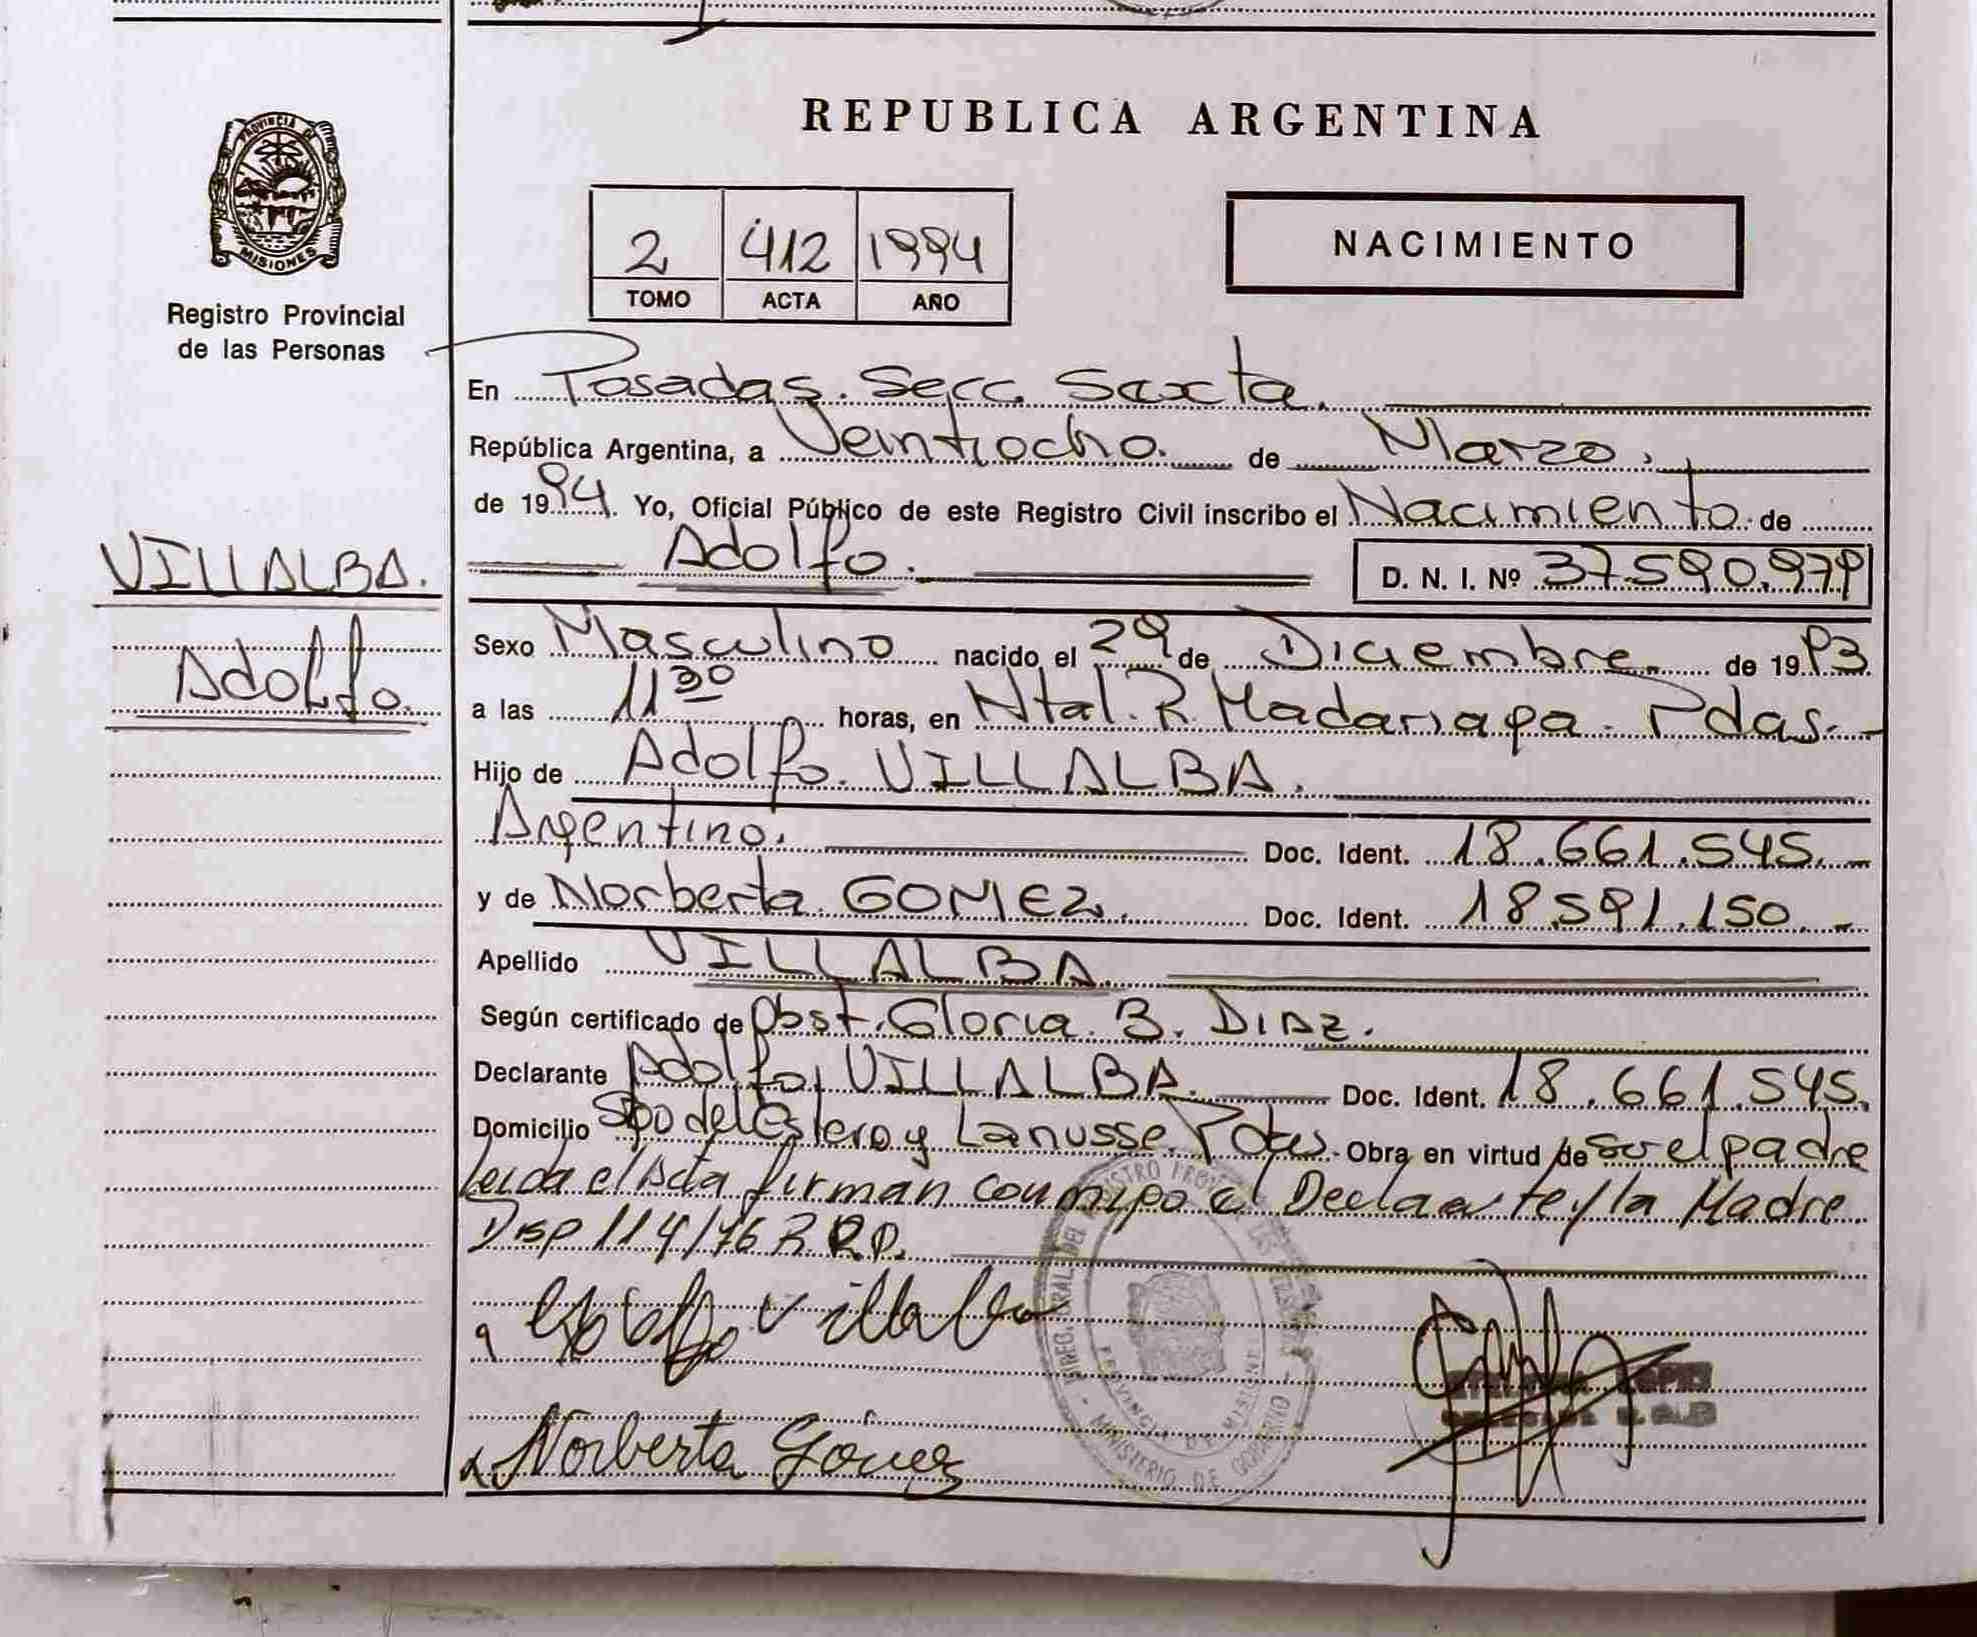 REPUBLICA ARGENTINA
PROVINCIA DE
MISIONES
Registro Provincial
de las Personas
2 412 1994
TOMO ACTA AÑO
NACIMIENTO
En Posadas. Secc. Sexta.
República Argentina, a Veintiocho. de Marzo.
de 1994. Yo, Oficial Público de este Registro Civil inscribo el Nacimiento de
Adolfo. D. N. I. Nº 37.590.979
VILLALBA.
Adolfo.
Sexo Masculino nacido el 29 de Diciembre de 1993
a las 11 30 horas, en Ntal. R. Madariaga. Pdas.-
Hijo de Adolfo. VILLALBA.
Argentino. Doc. Ident. 18.661.545.-
y de Norberta. GOMEZ. Doc. Ident. 18.591.150.-
Apellido VILLALBA.
Según certificado de Obst. Gloria. B. DIAZ.
Declarante Adolfo, VILLALBA. Doc. Ident. 18.661.545.
Domicilio Sgo del Estero y Lanusse. Pdas. Obra en virtud de ser el padre
Leida el Acta firman conmigo el Declarante y la Madre
Disp 114/76 R.R.P.
Adolfo Villalba
Norberta Gómez
DIREC. GRAL. DEL REGISTRO PROVINCIAL DE LAS PERSONAS
PROVINCIA DE MISIONES
MINISTERIO DE GOBIERNO